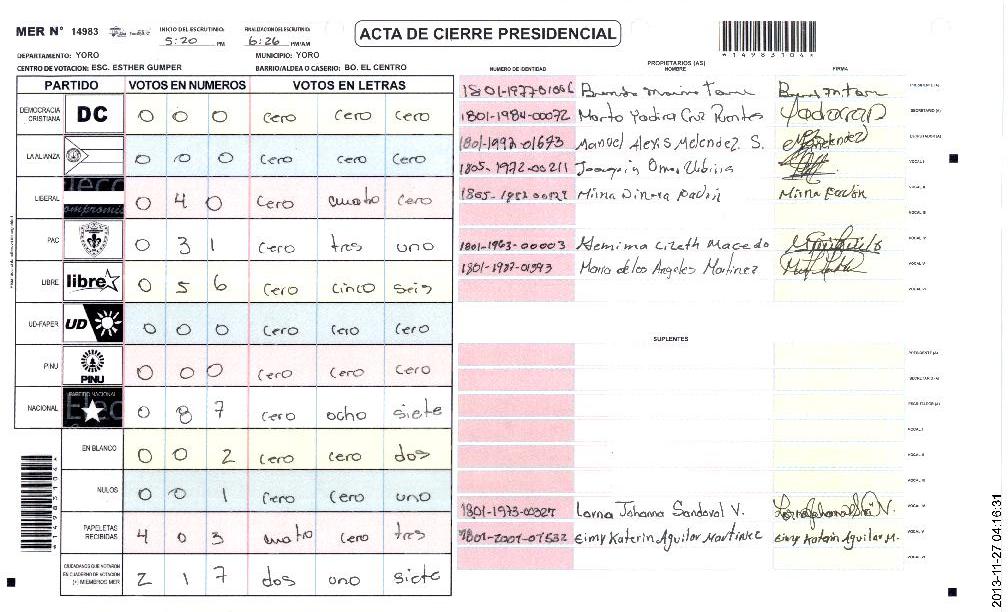 MER N° 14983 INICIO DEL ESCRUTINIO: 5:20 PM FINALIZACION DEL ESCRUTINIO: 6:26 PM/AM
ACTA DE CIERRE PRESIDENCIAL
*14983104*
DEPARTAMENTO: YORO MUNICIPIO: YORO
CENTRO DE VOTACION: ESC. ESTHER GUMPER BARRIO/ALDEA O CASERIO: BO. EL CENTRO
PARTIDO VOTOS EN NUMEROS VOTOS EN LETRAS
DEMOCRACIA CRISTIANA DC 0 0 0 Cero Cero Cero
LA ALIANZA 0 0 0 Cero Cero Cero
LIBERAL 0 4 0 Cero cuatro Cero
PAC 0 3 1 Cero tres uno
LIBRE libre 0 5 6 Cero cinco seis
UD-FAPER UD 0 0 0 Cero Cero Cero
PINU PINU 0 0 0 Cero Cero Cero
NACIONAL PARTIDO NACIONAL 0 8 7 cero ocho siete
EN BLANCO 0 0 2 Cero cero dos
NULOS 0 0 1 Cero Cero uno
PAPELETAS RECIBIDAS 4 0 3 cuatro Cero tres
CIUDADANOS QUE VOTARON EN CUADERNO DE VOTACION (+) MIEMBROS MER 2 1 7 dos uno siete
PROPIETARIOS (AS)
NUMERO DE IDENTIDAD NOMBRE FIRMA
PRESIDENTE (A)
1801-1984-00072 Marta Yadira Cruz Puntes SECRETARIO (A)
1801-1992-01693 Manuel Alexis Melendez S. Melendez ESCRUTADOR (A)
1805-1972-00211 Joaquin Omar Urbina VOCAL I
Mirna Mirna Pavón VOCAL II
VOCAL III
1801-1963-00003 Hemima Lizeth Macedo VOCAL IV
1801-1987-01393 Maria de los Angeles Martinez VOCAL V
VOCAL VI
SUPLENTES
PRESIDENTE (A)
SECRETARIO (A)
ESCRUTADOR (A)
VOCAL I
VOCAL II
VOCAL III
1801-1973-00327 Lorna Johanna Sandoval V. VOCAL IV
1801-2001-01532 Eimy Katerin Aguilar Martinez Eimy Katerin Aguilar M. VOCAL V
VOCAL VI
*14983104*
2013-11-27 04:16:31